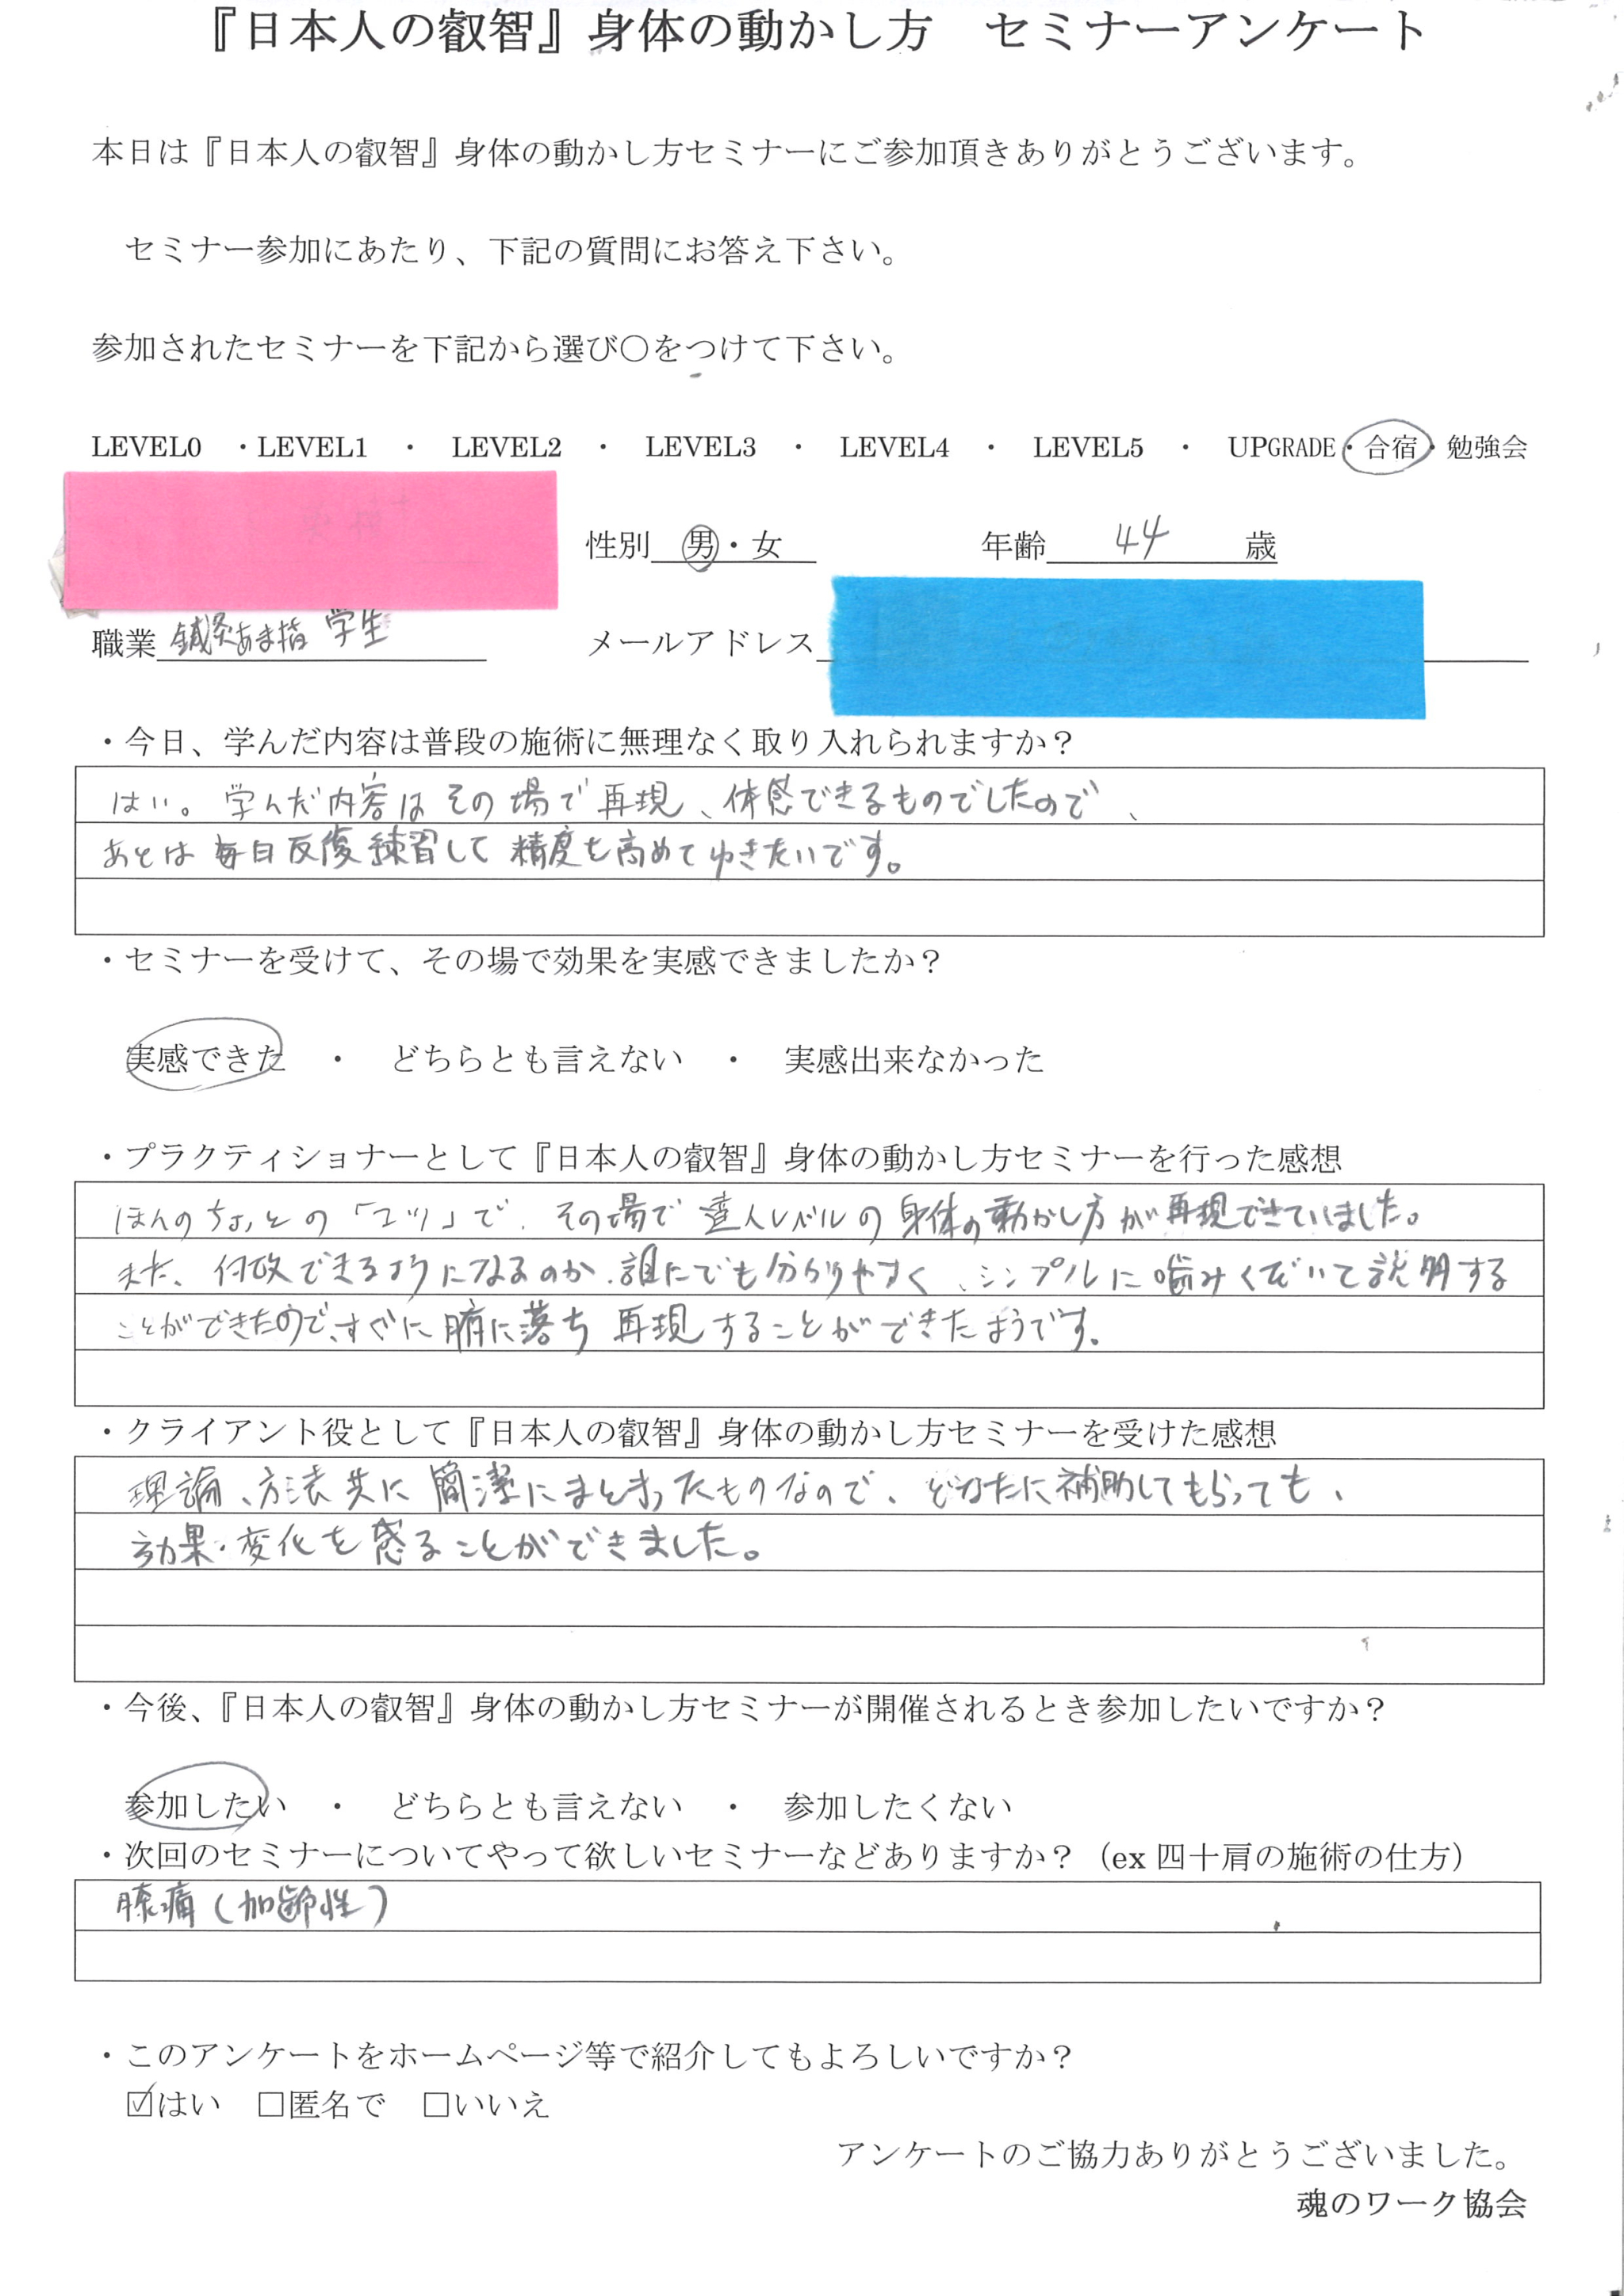 『日本人の叡智』身体の動かし方　セミナーアンケート
本日は『日本人の叡智』身体の動かし方セミナーにご参加頂きありがとうございます。
セミナー参加にあたり、下記の質問にお答え下さい。
参加されたセミナーを下記から選び○をつけて下さい。
LEVEL0　・LEVEL1　・　LEVEL2　・　LEVEL3　・　LEVEL4　・　LEVEL5　・　UPGRADE・合宿・勉強会
性別　男・女　年齢　44　歳
職業　鍼灸あま指 学生　メールアドレス
・今日、学んだ内容は普段の施術に無理なく取り入れられますか？
はい。学んだ内容はその場で再現、体感できるものでしたので、
あとは毎日反復練習して精度を高めてゆきたいです。
・セミナーを受けて、その場で効果を実感できましたか？
実感できた　・　どちらとも言えない　・　実感出来なかった
・プラクティショナーとして『日本人の叡智』身体の動かし方セミナーを行った感想
ほんのちょっとの「コツ」で、その場で達人レベルの身体の動かし方が再現できていました。
また、何故できるようになるのか、誰にでも分かりやすく、シンプルに噛みくだいて説明する
ことができたので、すぐに腑に落ち再現することができたようです。
・クライアント役として『日本人の叡智』身体の動かし方セミナーを受けた感想
理論、方法共に簡潔にまとまったものなので、どなたに補助してもらっても、
効果・変化を感ることができました。
・今後、『日本人の叡智』身体の動かし方セミナーが開催されるとき参加したいですか？
参加したい　・　どちらとも言えない　・　参加したくない
・次回のセミナーについてやって欲しいセミナーなどありますか？（ex 四十肩の施術の仕方）
膝痛（加齢性）
・このアンケートをホームページ等で紹介してもよろしいですか？
☑はい　□匿名で　□いいえ
アンケートのご協力ありがとうございました。
魂のワーク協会